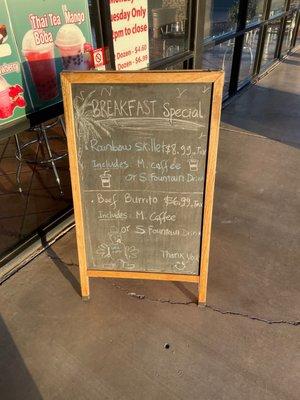 Thai Tea
La Mango
Boba
Tuesday Only
5 pm to close
Dozen $4.60
Dozen $6.99
BREAKFAST Special
Rainbow Skillet $8.99+Tax
Includes M. coffee
or S. Fountain Drink
Beef Burrito $6.99+Tax
Includes: M. Coffee
or S Fountain Drink
Thank You